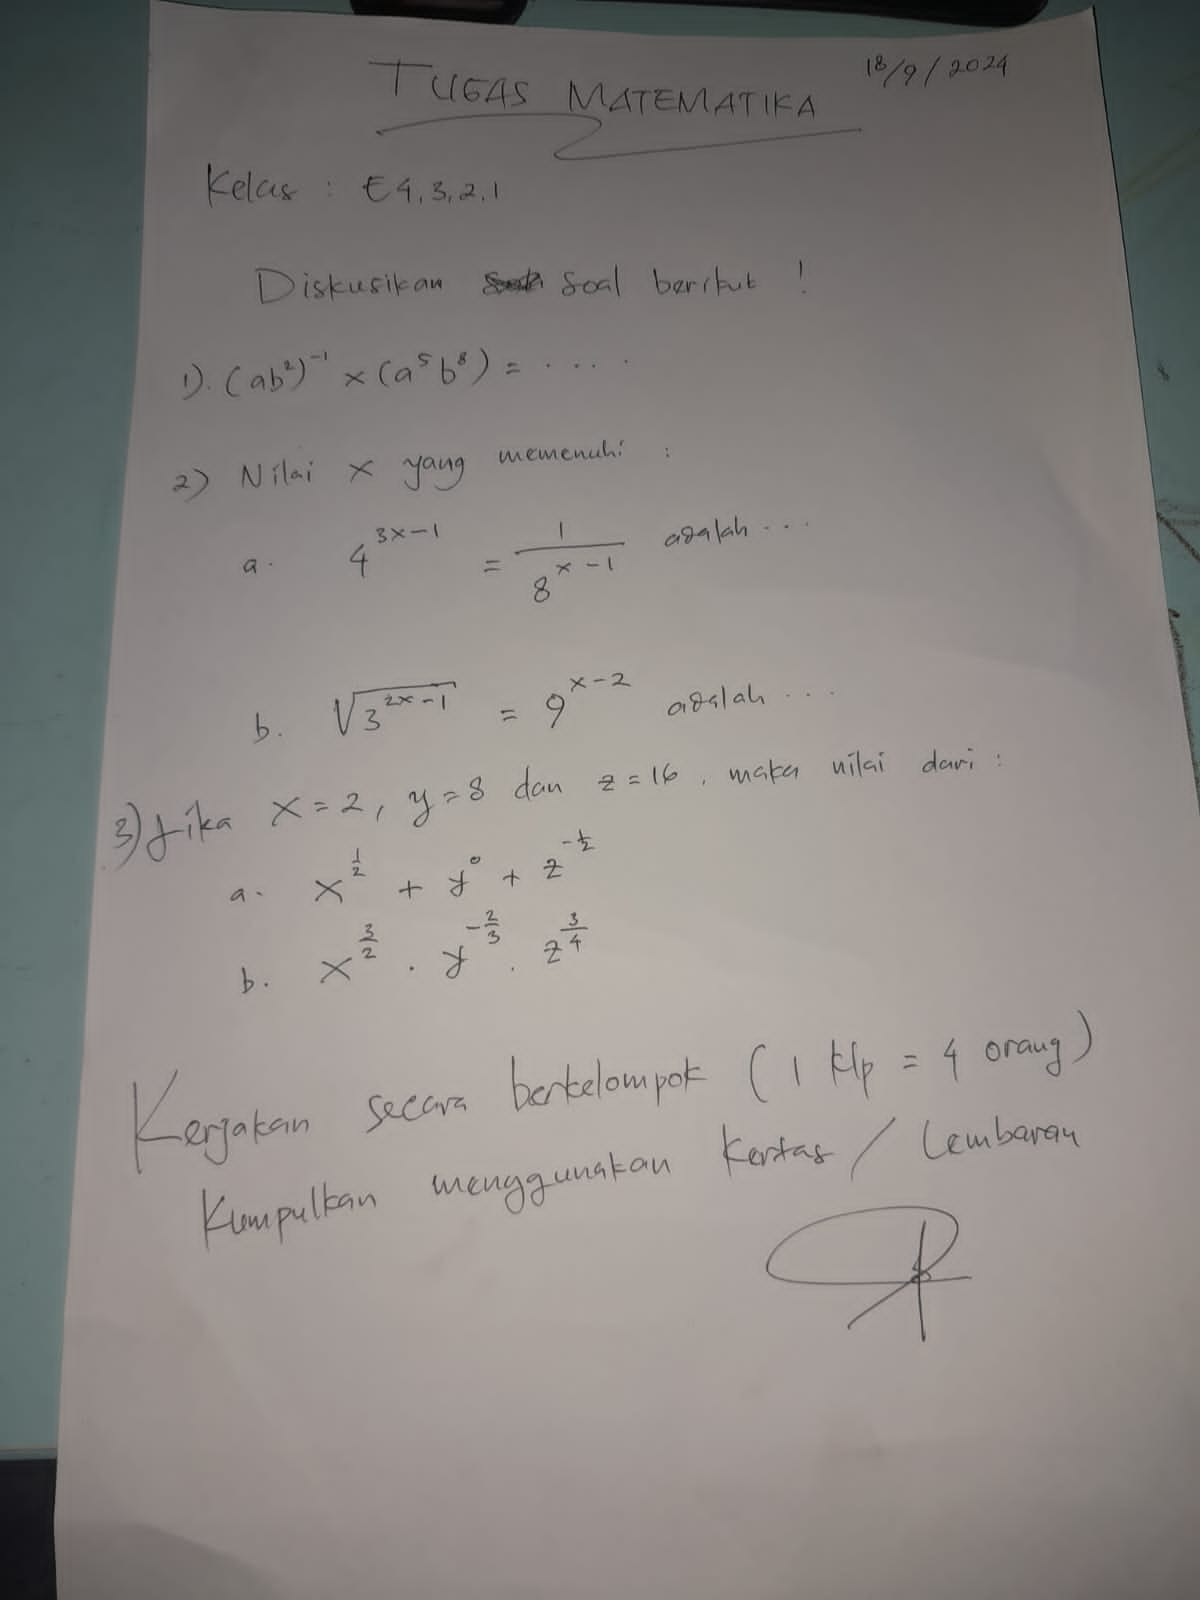 18/9/2024
TUGAS MATEMATIKA
Kelas : E4,3,2,1
Diskusikan soal berikut !
1). (ab²)⁻¹ × (a⁵b⁸) = .....
2) Nilai x yang memenuhi :
a. 4^(3x-1) = 1/8^(x-1) adalah ...
b. √(3^(2x-1)) = 9^(x-2) adalah ...
3) Jika x = 2, y = 8 dan z = 16, maka nilai dari :
a. x^(1/2) + y⁰ + z^(-1/2)
b. x^(3/2) . y^(-2/3) . z^(3/4)
Kerjakan secara berkelompok (1 klp = 4 orang)
Kumpulkan menggunakan Kertas / Lembaran